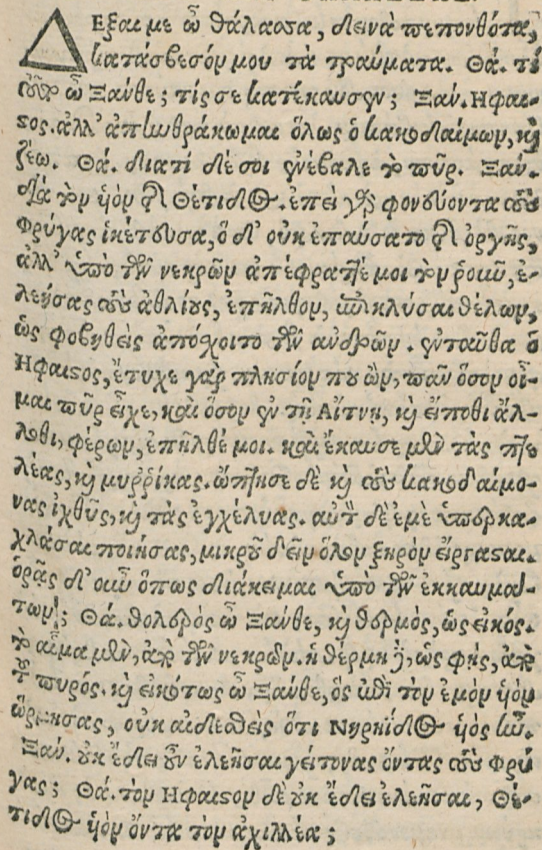 Δεξαι με ὦ θάλαοσα, δεινὰ πεπονθότα,
κατάσβεσόν μου τὰ τραύματα. Θά. τί
τοῦτο ὦ Ξάνθε; τίς σε κατέκαυσεν; Ξαν. Ηφαι-
στος. ἀλλ' ἀπηνθράκωμαι ὅλως ὁ κακοδαίμων, καὶ
ζέω. Θά. διατί δέ σοι ἐνέβαλε τὸ πῦρ. Ξαν.
διὰ τὸν υἱὸν τῆς Θέτιδος. ἐπεὶ γὰρ φονεύοντα τοὺς
Φρύγας ἱκέτευσα, ὁ δ' οὐκ ἐπαύσατο τῆς ὀργῆς,
ἀλλ' ὑπὸ τῶν νεκρῶν ἀπέφραττέ μοι τὸν ῥοῦν, ἐ-
λεήσας τοὺς ἀθλίους, ἐπῆλθον, ἐπικλύσαι θέλων,
ὡς φοβηθεὶς ἀπόσχοιτο τῶν ανδρῶν. ἐνταῦθα ὁ
Ηφαιστος, ἔτυχε γὰρ πλησίον που ὢν, πᾶν ὅσον οἶ-
μαι πῦρ εἶχε, καὶ ὅσον ἐν τῇ Αἴτνῃ, καὶ εἴποθι ἄλ-
λοθι, φέρων, ἐπῆλθέ μοι. καὶ ἔκαυσε μὲν τὰς πτε
λέας, καὶ μυρρίκας. ὤπτησε δὲ καὶ τοὺς κακοδαίμο-
νας ἰχθῦς, καὶ τὰς ἐγχέλυας. αὐτὸν δὲ ἐμὲ ὑπερκα-
χλάσαι ποιήσας, μικροῦ δεῖν ὅλον ξηρὸν εἴργασαι.
ὁρᾷς δ' οὖν ὅπως διάκειμαι ὑπὸ τῶν ἐκκαυμά-
των; Θά. θολερὸς ὦ Ξάνθε, καὶ θερμὸς, ὡς εἰκός.
τὸ αἷμα μὲν, ἀπὸ τῶν νεκρῶν. ἡ θέρμη δὲ, ὡς φῂς, ἀπὸ
τοῦ πυρός. καὶ εἰκότως ὦ Ξάνθε, ὃς ἐπὶ τὸν ἐμὸν υἱὸν
ὥρμησας, οὐκ αἰδεσθεὶς ὅτι Νηρηΐδος υἱὸς ἦν.
Ξαν. οὐκ ἔδει οὖν ἐλεῆσαι γείτονας ὄντας τοὺς Φρύ
γας; Θά. τὸν Ηφαιστον δὲ οὐκ ἔδει ἐλεῆσαι, Θέ-
τιδος υἱὸν ὄντα τὸν ἀχιλλέα;